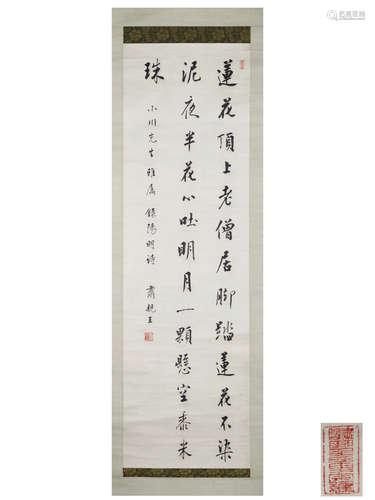 蓮花頂上老僧居脚踏蓮花不染
泥夜半花心吐明月一顆懸空黍米
珠
小川先生雅属 録陽明詩 肅親王